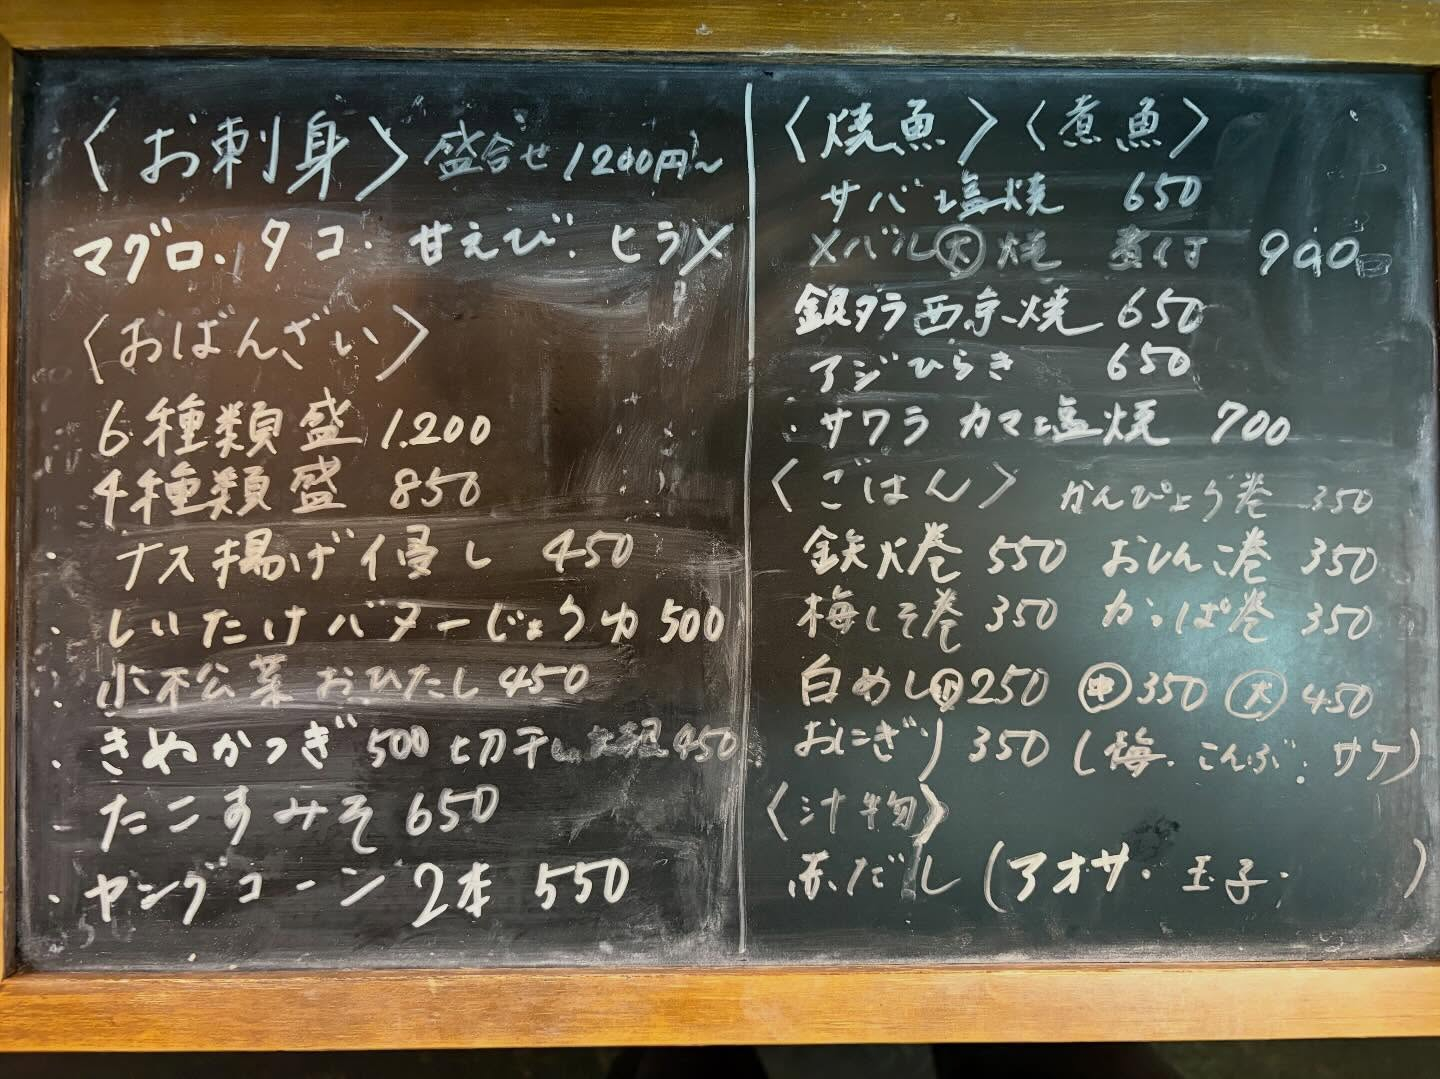 〈お刺身〉盛合せ1200円〜
マグロ.タコ.甘えび.ヒラメ
〈おばんざい〉
6種類盛 1.200
4種類盛 850
・ナス揚げ浸し 450
・しいたけバターじょうゆ 500
・小松菜おひたし 450
・きぬかつぎ 500 切干し大根 450
・たこすみそ 650
・ヤングコーン 2本 550
〈焼魚〉〈煮魚〉
サバ塩焼 650
メバル大 焼 煮付 900
銀ダラ西京焼 650
アジひらき 650
・サワラカマ塩焼 700
〈ごはん〉 かんぴょう巻 350
鉄火巻 550 おしんこ巻 350
梅しそ巻 350 かっぱ巻 350
白めし小250 中350 大450
おにぎり 350 (梅.こんぶ.サケ)
〈汁物〉
赤だし (アオサ.玉子. )